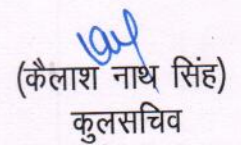 (कैलाश नाथ सिंह)
कुलसचिव